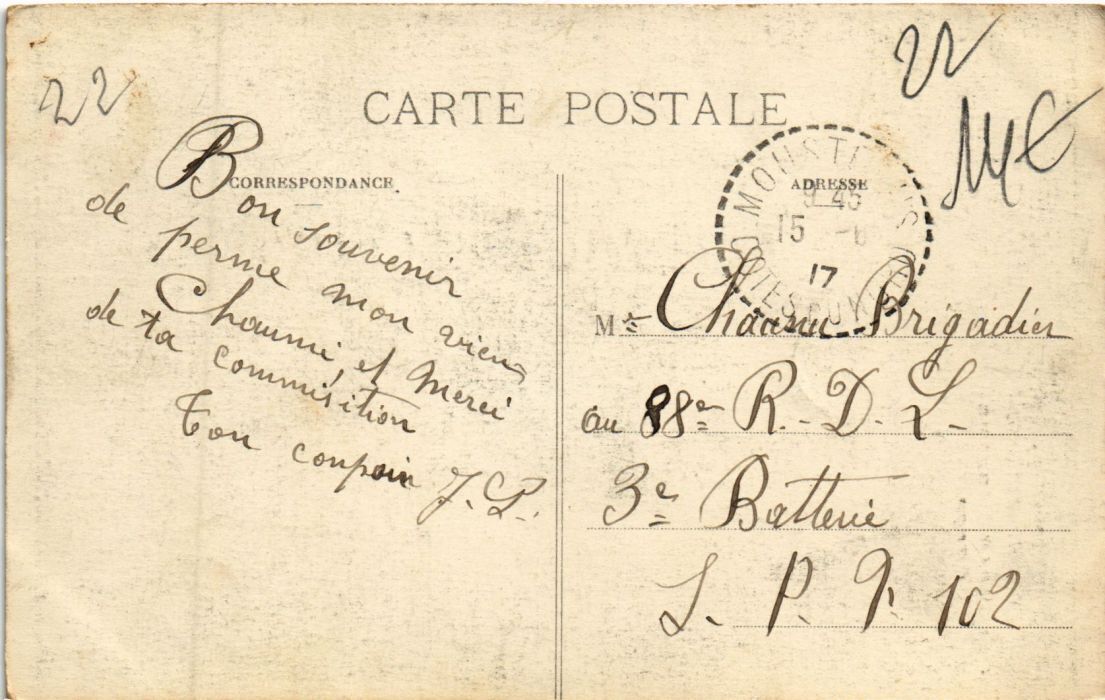 22
22
ME
CARTE POSTALE
CORRESPONDANCE
ADRESSE
9 45
15
17
Bon souvenir
de perme mon vieux
Chaumi, et Merci
de ta commisition
Ton coupain J. P.
Mr Chaumi Brigadier
au 88e R. - D. L -
3e Batterie
S. P. 102